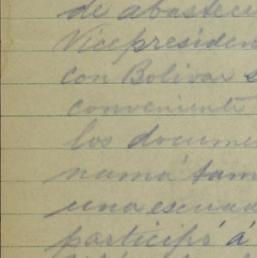 de abastec
Vicepresiden
con Bolivar s
conveniente
los docume
namá tam
una escuad
participó á